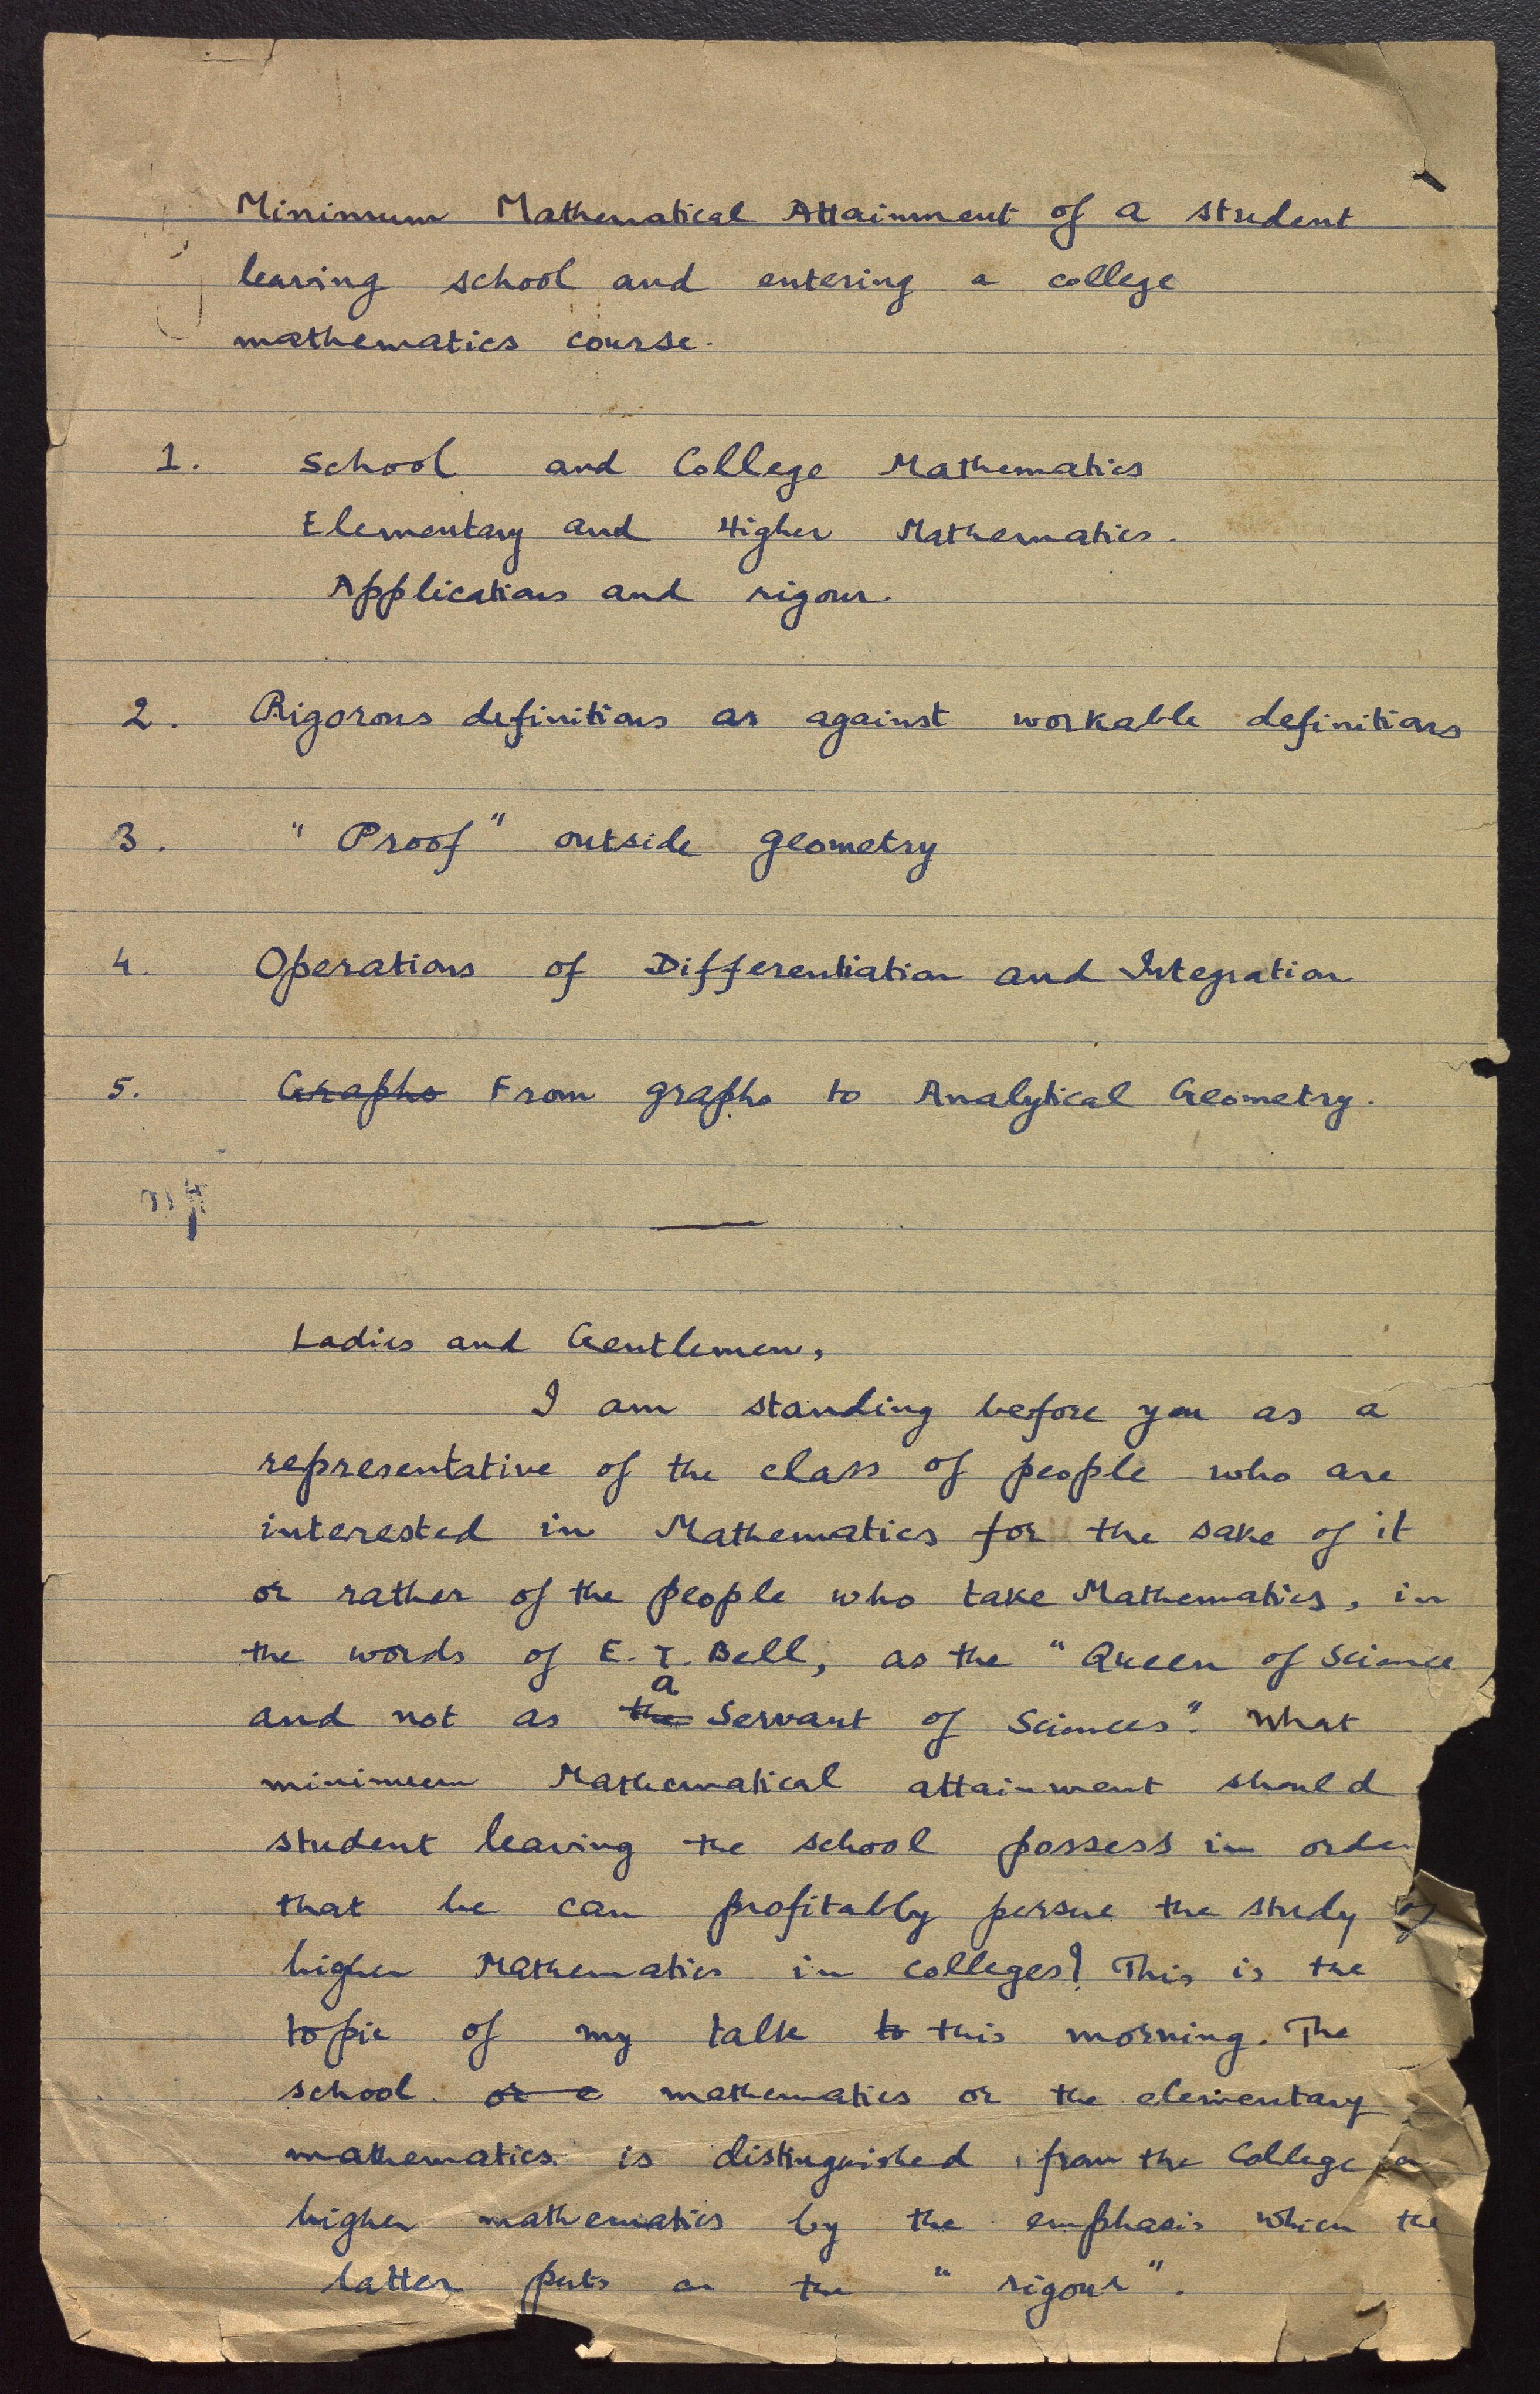 Minimum Mathematical Attainment of a student
leaving school and entering a college
mathematics course.
1. School and College Mathematics
Elementary and Higher Mathematics.
Applications and rigour.
2. Rigorous definitions as against workable definitions
3. "Proof" outside geometry
4. Operations of Differentiation and Integration
5. Graphs From graphs to Analytical Geometry.
Ladies and Gentlemen,
I am standing before you as a
representative of the class of people who are
interested in Mathematics for the sake of it
or rather of the people who take Mathematics, in
the words of E. T. Bell, as the "Queen of Science
a
and not as the Servant of Sciences". What
minimum Mathematical attainment should
student leaving the school possess in orde
that he can profitably persue the study of
higher Mathematics in colleges? This is the
topic of my talk to this morning. The
school or c mathematics or the elementary
mathematics is distinguished from the College or
higher mathematics by the emphasis which the
latter puts on the "rigour".